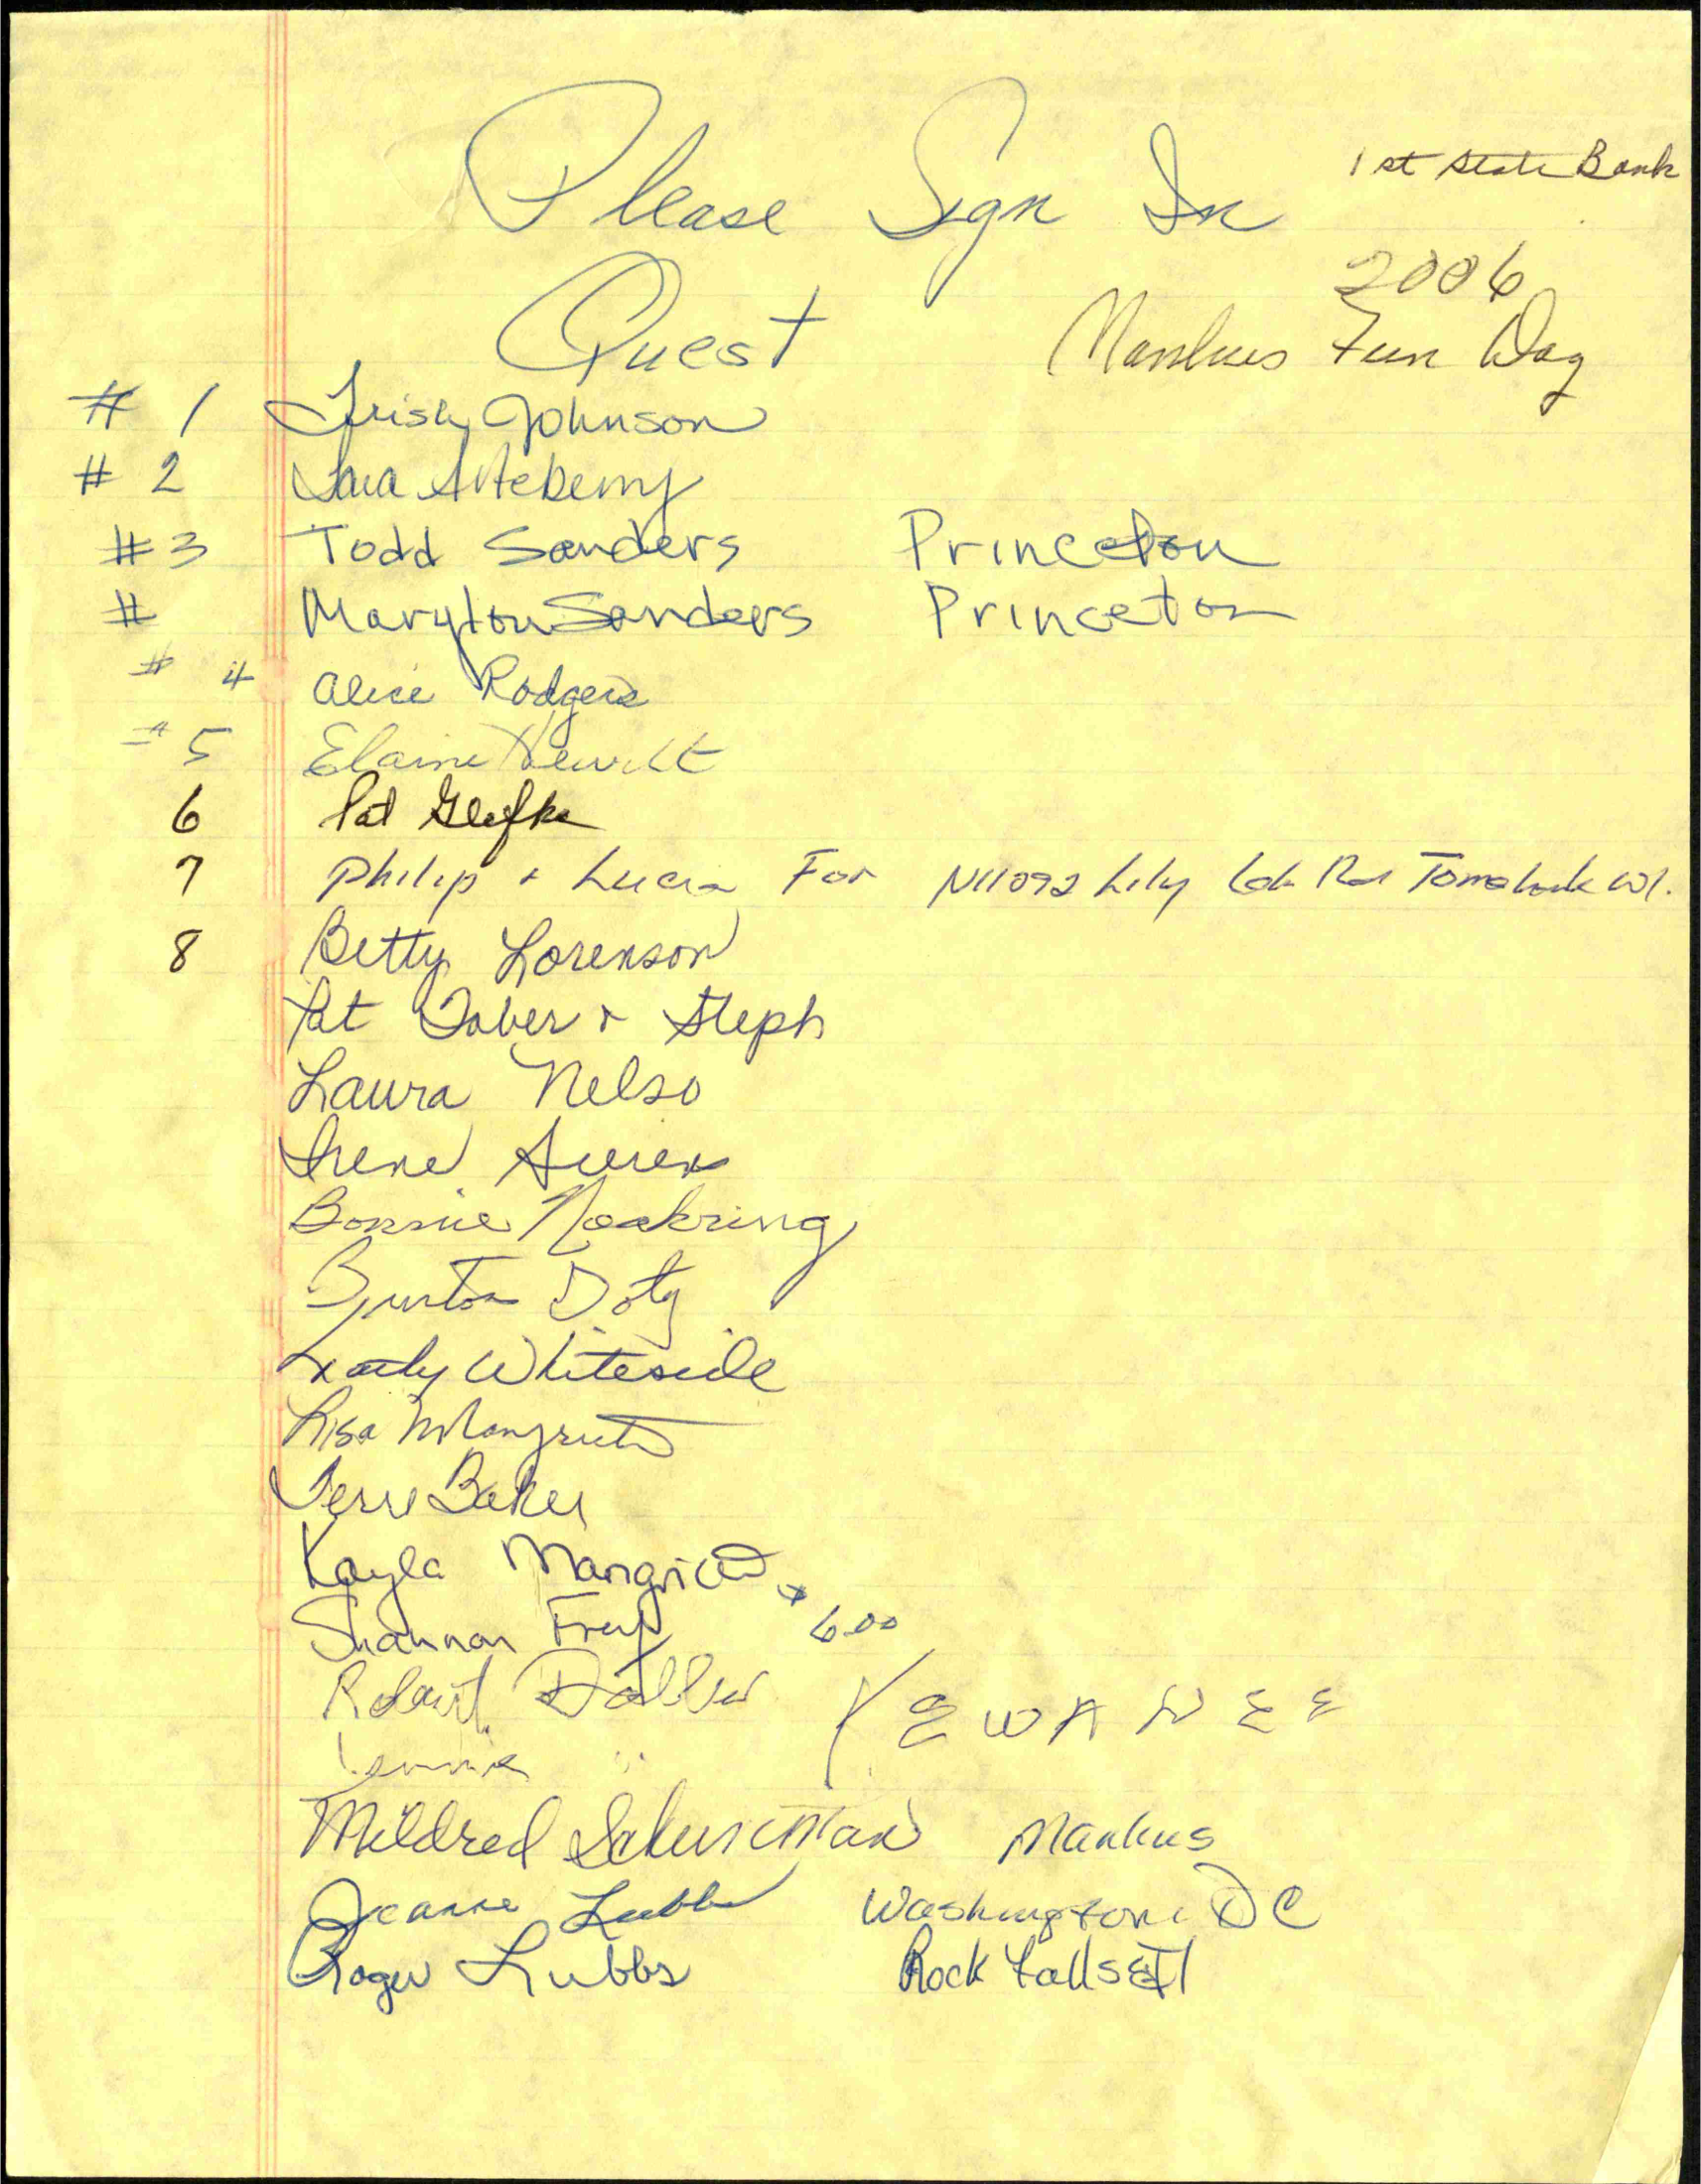 1st State Bank
Please Sign In
2006
Quest
Manlius Fun Day
# 1 Trish Johnson
# 2
#3 Todd Sanders Princeton
# Marylou Sanders Princeton
# 4 Alice Rodgers
#5 Elaine Hewitt
6 Pat
7 Philip + Lucia Fox N11092 Lily Rd Tomahawk WI.
8 Betty Lorenson
Pat Taber + Steph
Laura Nelso
Irene
Bonnie
Burton Doty
Whiteside
Lisa
Terri Baker
Kayla
Shannon Frey 6.00
Robert KEWANEE
"
Mildred Manlius
Jeanne Lubbs Washington DC
Roger Lubbs Rock Falls Il